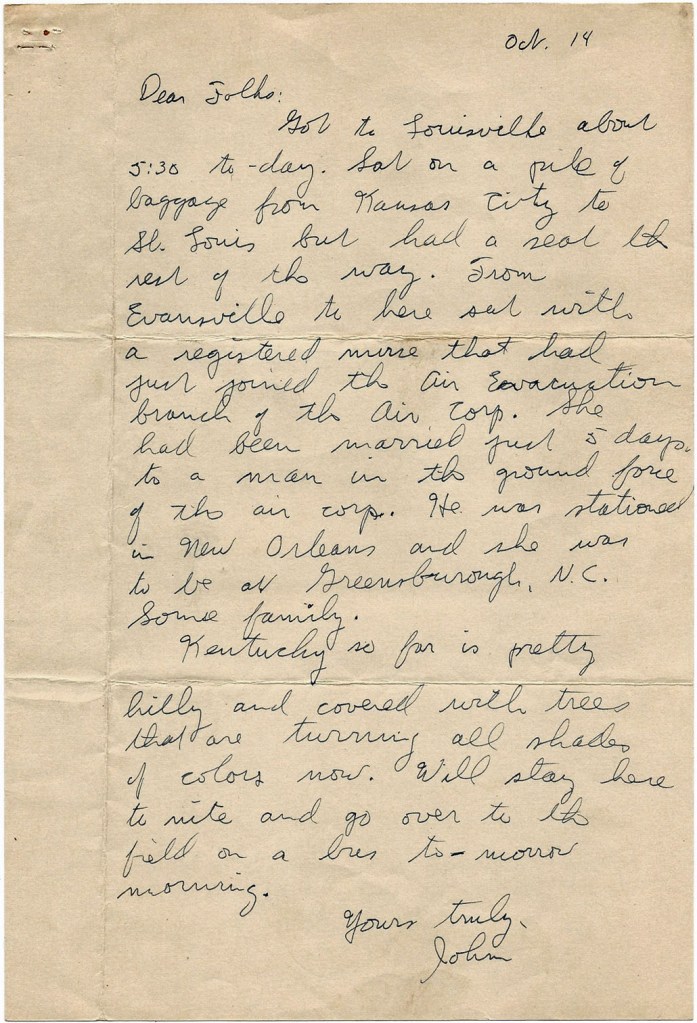 Oct. 14
Dear Folks:
Got to Louisville about
5:30 to-day. Sat on a pile of
baggage from Kansas City to
St. Louis but had a seat the
rest of the way. From
Evansville to here sat with
a registered nurse that had
just joined the Air Evacuation
branch of the Air Corp. She
had been married just 5 days
to a man in the ground force
of the air corp. He was stationed
in New Orleans and she was
to be at Greensburough, N.C.
Some family.
Kentucky so far is pretty
hilly and covered with trees
that are turning all shades
of colors now. Will stay here
to nite and go over to the
field on a bus to-morrow
morning.
Yours truly,
John